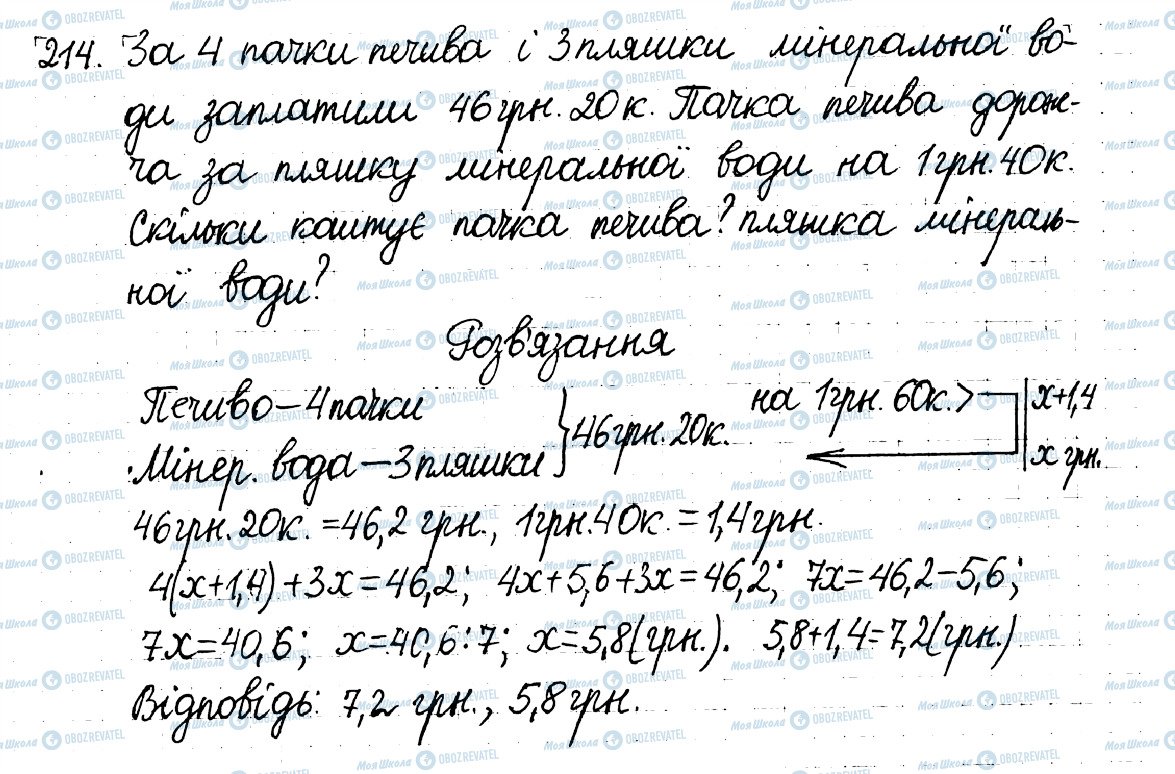 214. За 4 пачки печива і 3 пляшки мінеральної во-
ди заплатили 46 грн. 20 к. Пачка печива дорож-
ча за пляшку мінеральної води на 1 грн. 40 к.
Скільки коштує пачка печива? пляшка мінераль-
ної води?
Розв'язання
Печиво – 4 пачки
Мінер. вода – 3 пляшки
} 46 грн. 20 к.
на 1 грн. 60 к. >
x+1,4
x грн.
46 грн. 20 к. = 46,2 грн., 1 грн. 40 к. = 1,4 грн.
4(x+1,4)+3x=46,2; 4x+5,6+3x=46,2; 7x=46,2-5,6;
7x=40,6; x=40,6:7; x=5,8(грн.). 5,8+1,4=7,2(грн.)
Відповідь: 7,2 грн., 5,8 грн.
Моя Школа OBOZREVATEL